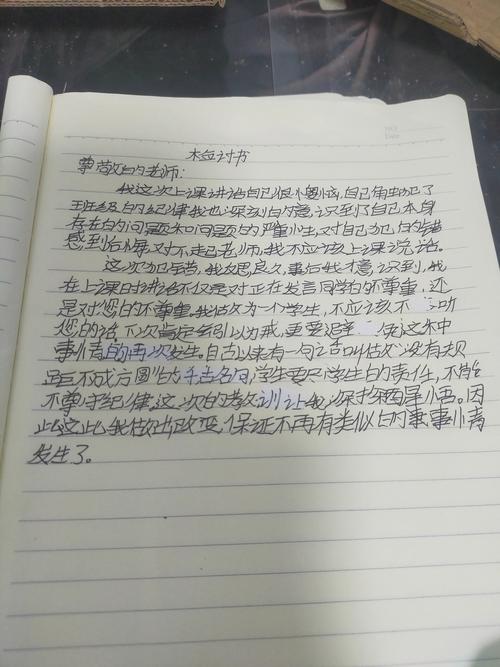 检讨书
尊敬的老师：
我这次上课讲话自己很惭愧，自己触犯了
班级的纪律我也深刻的意识到了自己本身
存在的问题和问题的严重性，对自己犯的错
感到后悔对不起老师，我不应该上课说话。
这次犯错，我思良久，事后我才意识到，我
在上课时讲话不仅是对正在发言同学的不尊重，还
是对您的不尊重。我做为一个学生，不应该不听
您的话下次肯定会引以为戒，更要 这种
事情的再次发生。自古以来有一句话叫做"没有规
矩不成方圆"的千古名句，学生要尽学生的责任，不能
不尊守纪律。这次的教训让我深 醒悟。因
此 我做出改变，保证不再有类似的事事情
发生了。